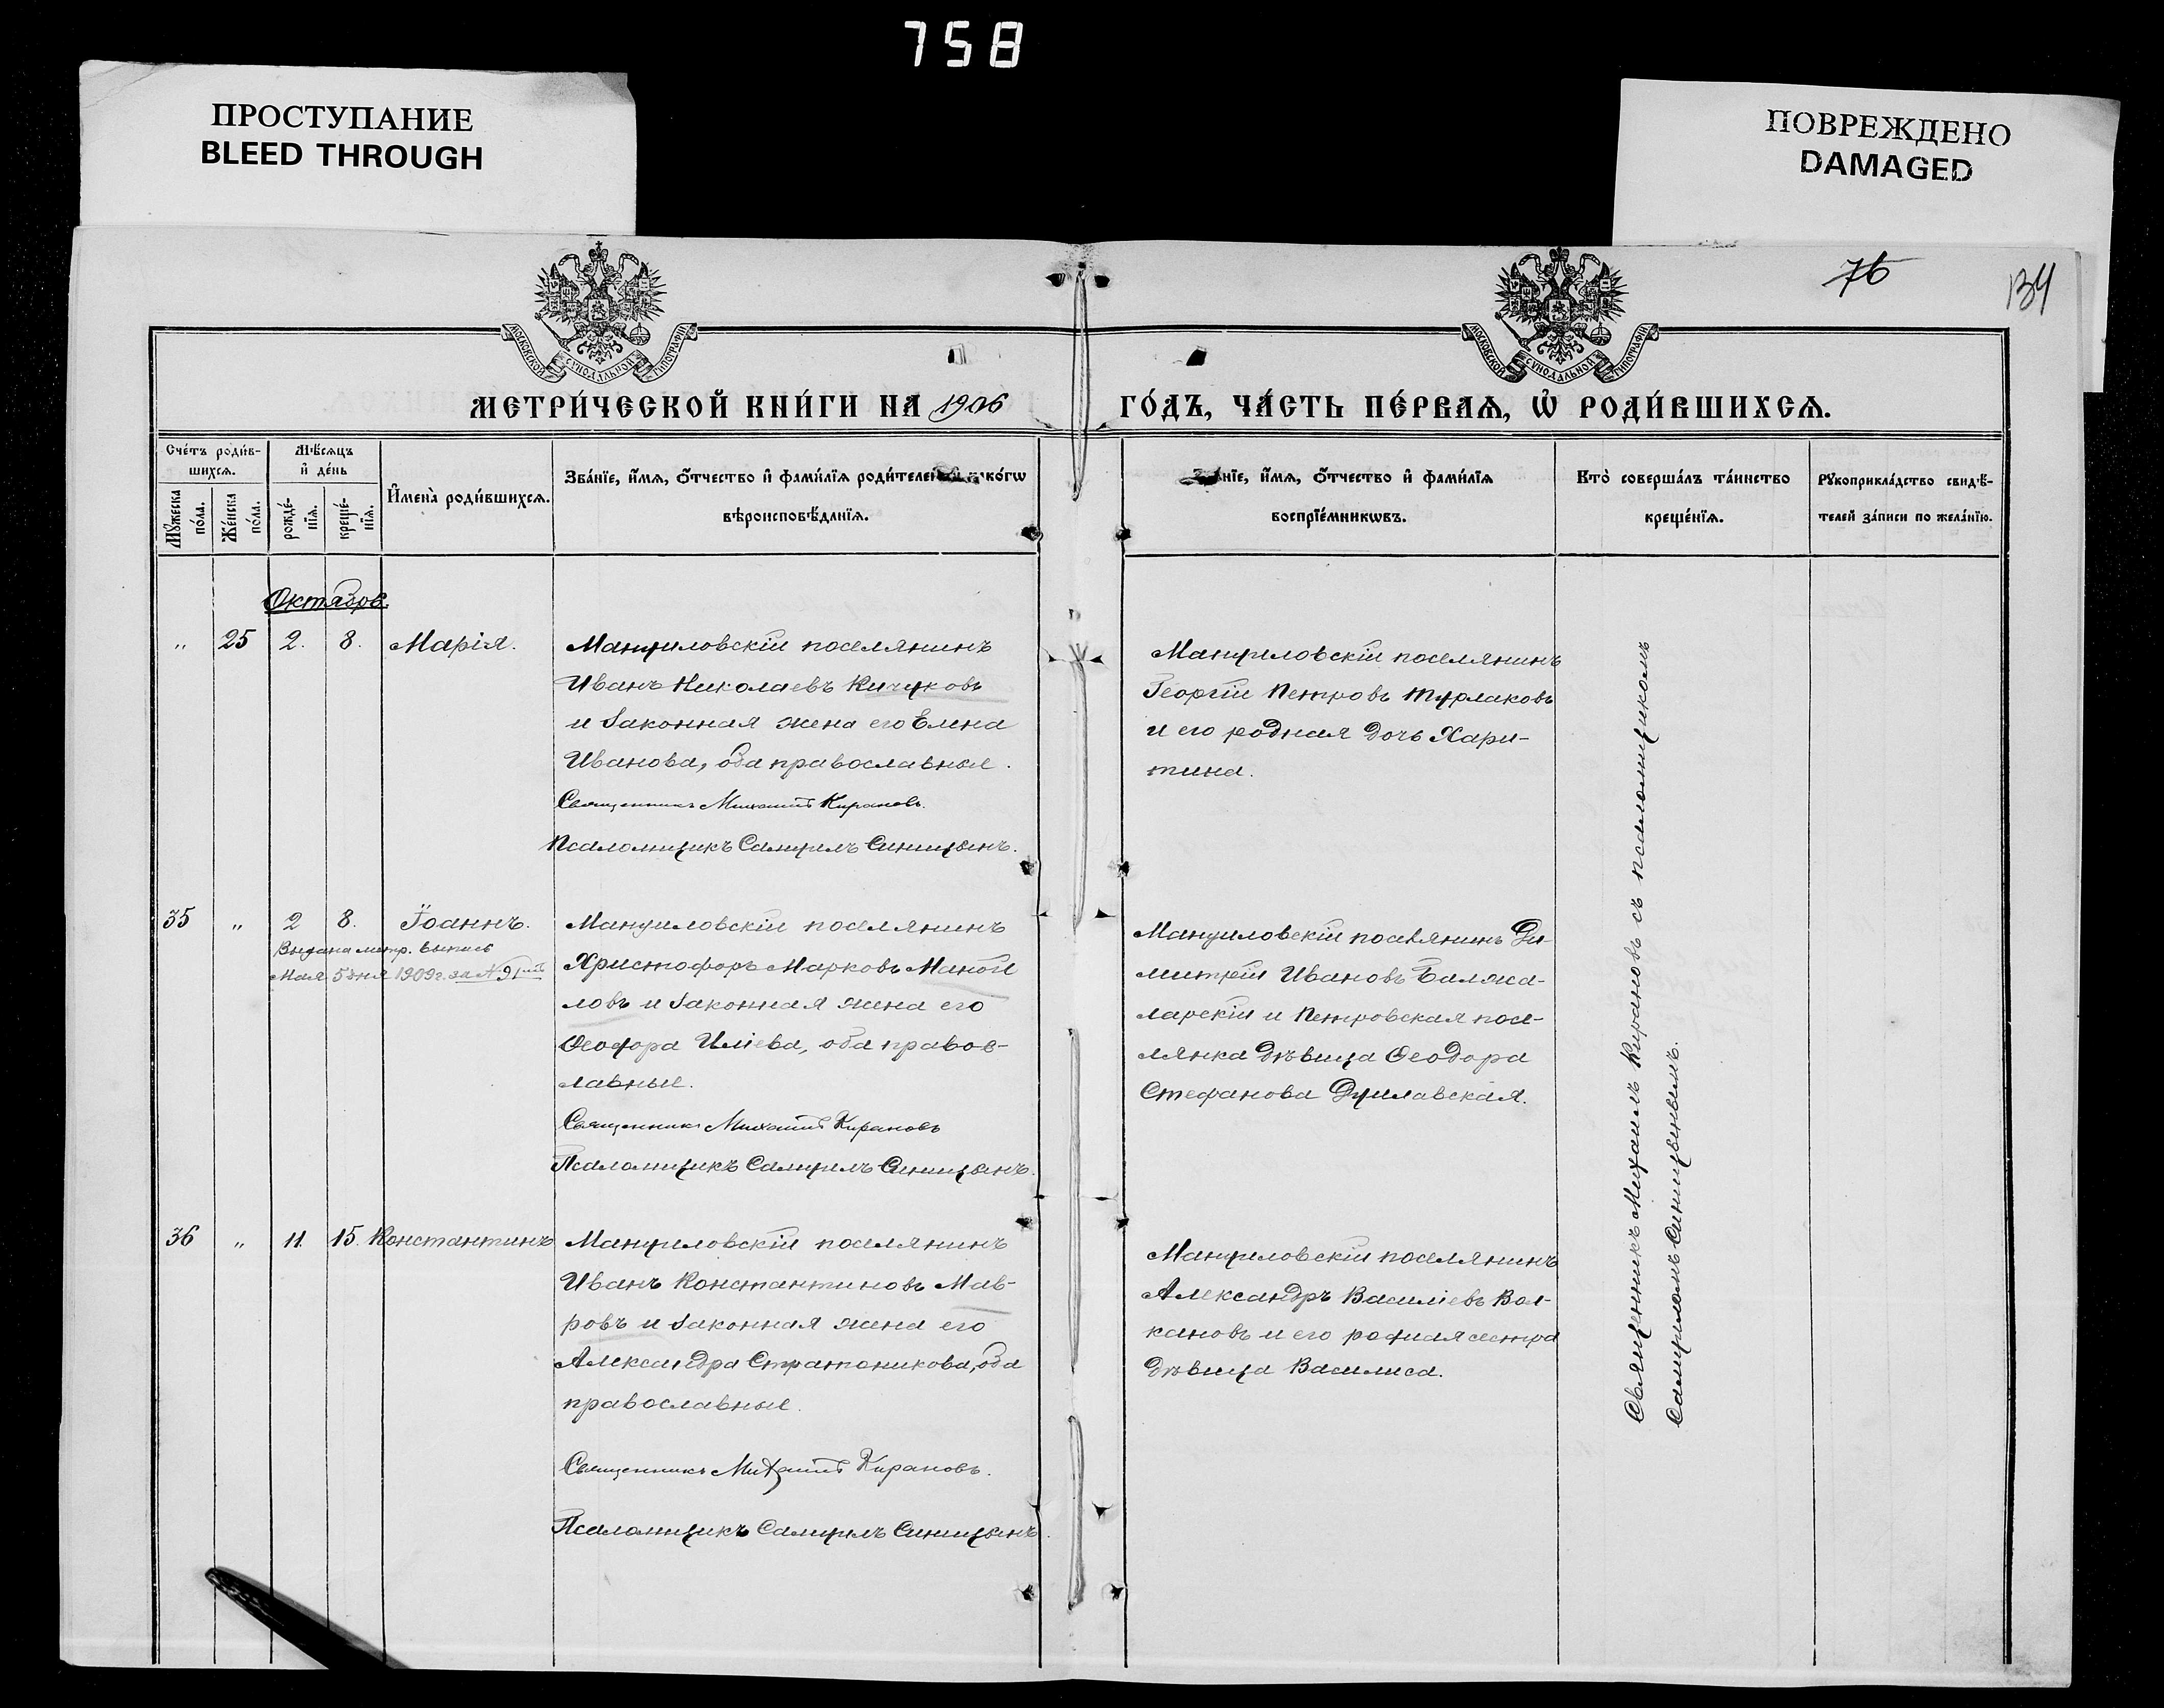 758
ПРОСТУПАНИЕ
BLEED THROUGH
ПОВРЕЖДЕНО
DAMAGED
76
134
МОСКОВСКОЙ СѴНОДАЛЬНОЙ ТИПОГРАФІИ
МОСКОВСКОЙ СѴНОДАЛЬНОЙ ТИПОГРАФІИ
МЕТРИ́ЧЕСКОЙ КНИ́ГИ НА 1906
ГО́ДЪ, ЧА́СТЬ ПЕ́РВАѦ, Ѡ҆ РОДИ́ВШИХСѦ.
Сче́тъ роди́в-
шихсѧ.
Мѣ́сѧцъ
и҆ де́нь
Мꙋжеска
по́ла.
Же́нска
по́ла.
рожде́-
нїѧ.
креще́-
нїѧ.
И҆мена̀ роди́вшихсѧ.
Зва́нїе, и҆́мѧ, ѻ҆́тчество и҆ фами́лїѧ роди́телей
вѣроисповѣ́данїѧ.
и҆́мѧ, ѻ҆́тчество и҆ фами́лїѧ
воспрїе́мникѡвъ.
Кто̀ соверша́лъ та́инство
креще́нїѧ.
Рꙋкоприкла́дство свидѣ́-
телей за́писи по жела́нїю.
Октябрь.
" 25 2. 8. Марія.
Мануиловскій поселянинъ
Иванъ Николаевъ Кичуковъ
и законная жена его Елена
Иванова, оба православные.
Священникъ Михаилъ Кирановъ.
Псаломщикъ Самуилъ Синицынъ.
Мануиловскій поселянинъ
Георгій Петровъ Турлаковъ
и его родная дочь Хари-
тина.
35 " 2 8. Іоаннъ.
Выдана метр. выпись
Мая 5 дня 1909 г. за № 91
Мануиловскій поселянинъ
Христофоръ Марковъ Маной
ловъ и законная жена его
Ѳеодора Иліева, оба правос-
лавные.
Священникъ Михаилъ Кирановъ
Псаломщикъ Самуилъ Синицынъ.
Мануиловскій поселянинъ Ди-
митрій Ивановъ Баляса-
ларскій и Петровская посе-
лянка дѣвица Ѳеодора
Стефанова Дуилавская.
36 " 11. 15. Константинъ
Мануиловскій поселянинъ
Иванъ Константиновъ Мав-
ровъ и законная жена его
Александра Стратоникова, оба
православные.
Священникъ Михаилъ Кирановъ.
Псаломщикъ Самуилъ Синицынъ.
Мануиловскій поселянинъ
Александръ Василіевъ Вол-
кановъ и его родная сестра
дѣвица Василиса.
Священникъ Михаилъ Кирановъ съ псаломщикомъ
Самуиломъ Синицынымъ.